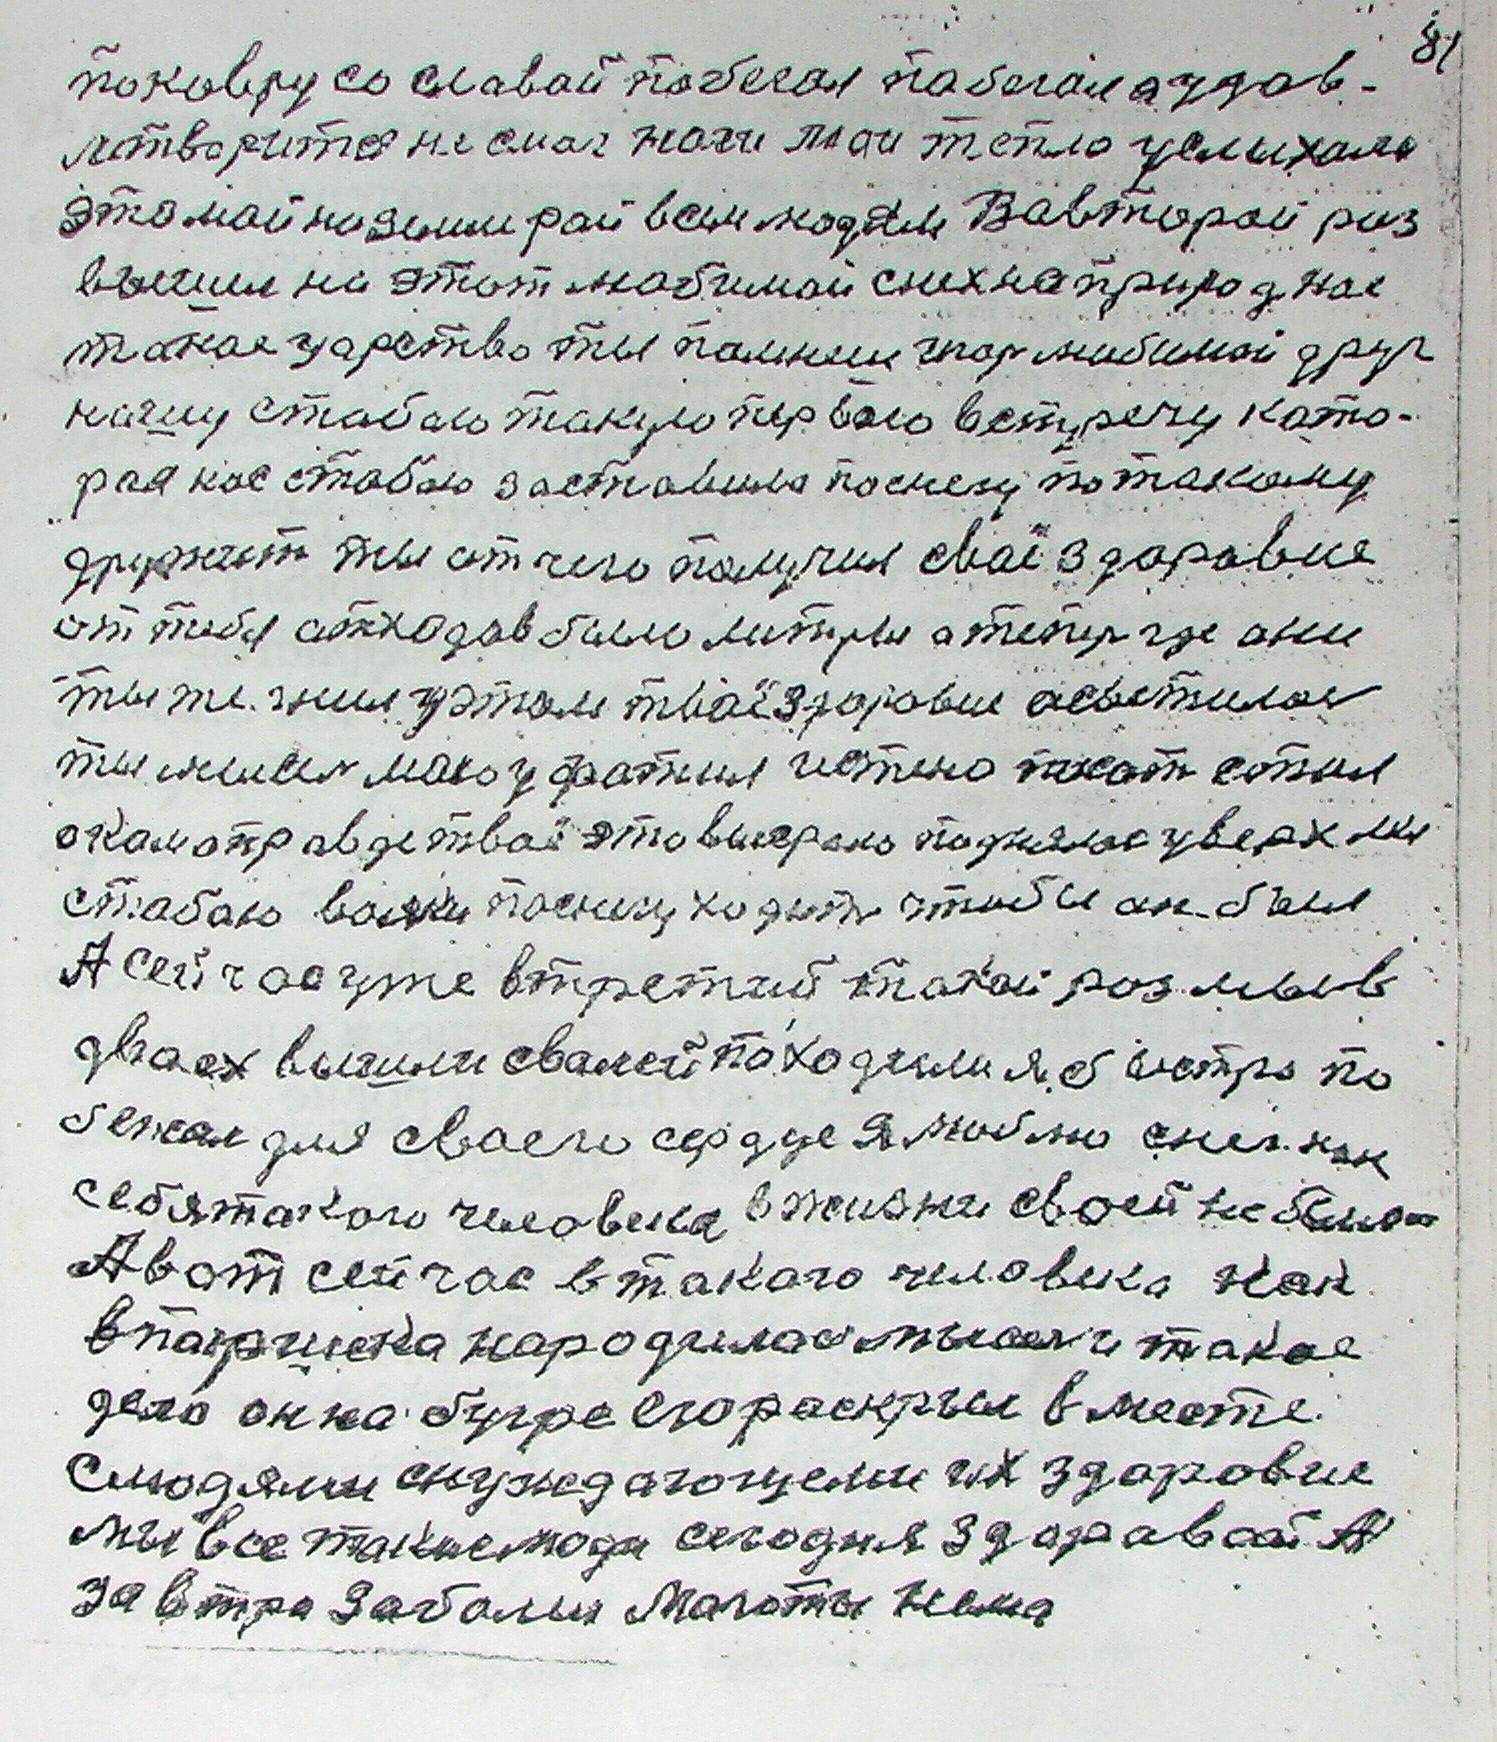 81
поковру со славай побегал пабегал а удав-
летворится не смог наги маи тепло услыхали
это май на земли рай всем людям Вавторой раз
вышел на этот любимай снех на природнае
такое царство ты помниш мой любимай друг
нашу стабаю такую первою встречу кото-
рая нас стабаю заставила поснегу по такому
дружит ты от чего получил сваё здоровие
от тебя отходав было литры а тепер где они
ты же гнил у этом тваё здоровие асветилос
ты мысл маю уфатил чистно писат стил
а оправде тваё это выиграло поднялос уверх мы
стабаю вошли поснегу ходит чтобы он был
А сейчас уже втретий такой роз мы в
двоех вышли свалей походили я быстро по
бежал для своего сердце Я люблю снег как
себя такого человека в жизни своей не было
А вот сейчас в такого человека как
в паршека народилас мысл и такое
дело он на бугре его раскрыл в месте
слюдями снуждающеми их здоровие
мы все такие люди сегодня здоровай А
завтра заболил Маготы нема